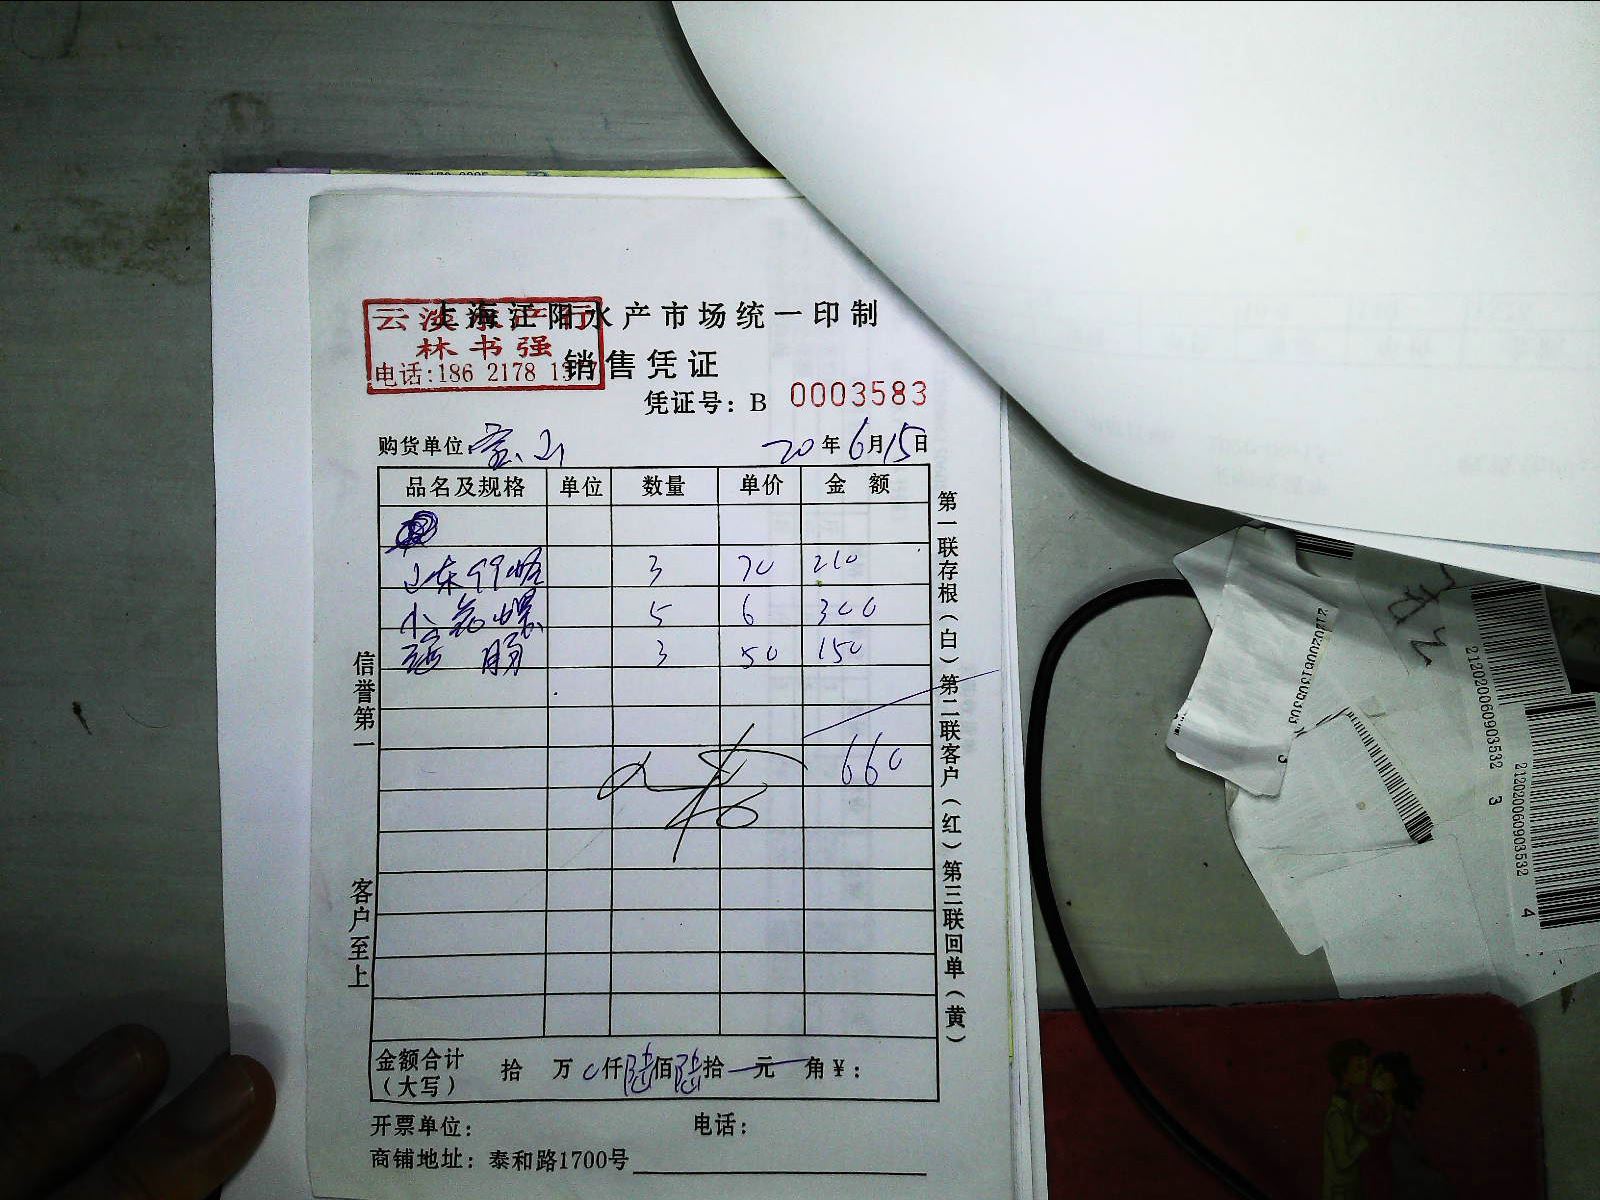 上海江阳水产市场统一印制
云淡水产行
林书强
电话:186 2178 1
销售凭证
凭证号：B 0003583
购货单位 宝山 20年6月15日
品名及规格 单位 数量 单价 金额
山东 3 70 210
小花螺 5 6 300
3 50 150
660
金额合计（大写） 拾 万 0仟陆佰陆拾 元 角￥：
开票单位： 电话：
商铺地址：泰和路1700号
信誉第一 客户至上
第一联存根（白）第二联客户（红）第三联回单（黄）
212020060903532 3
212020060903532 4